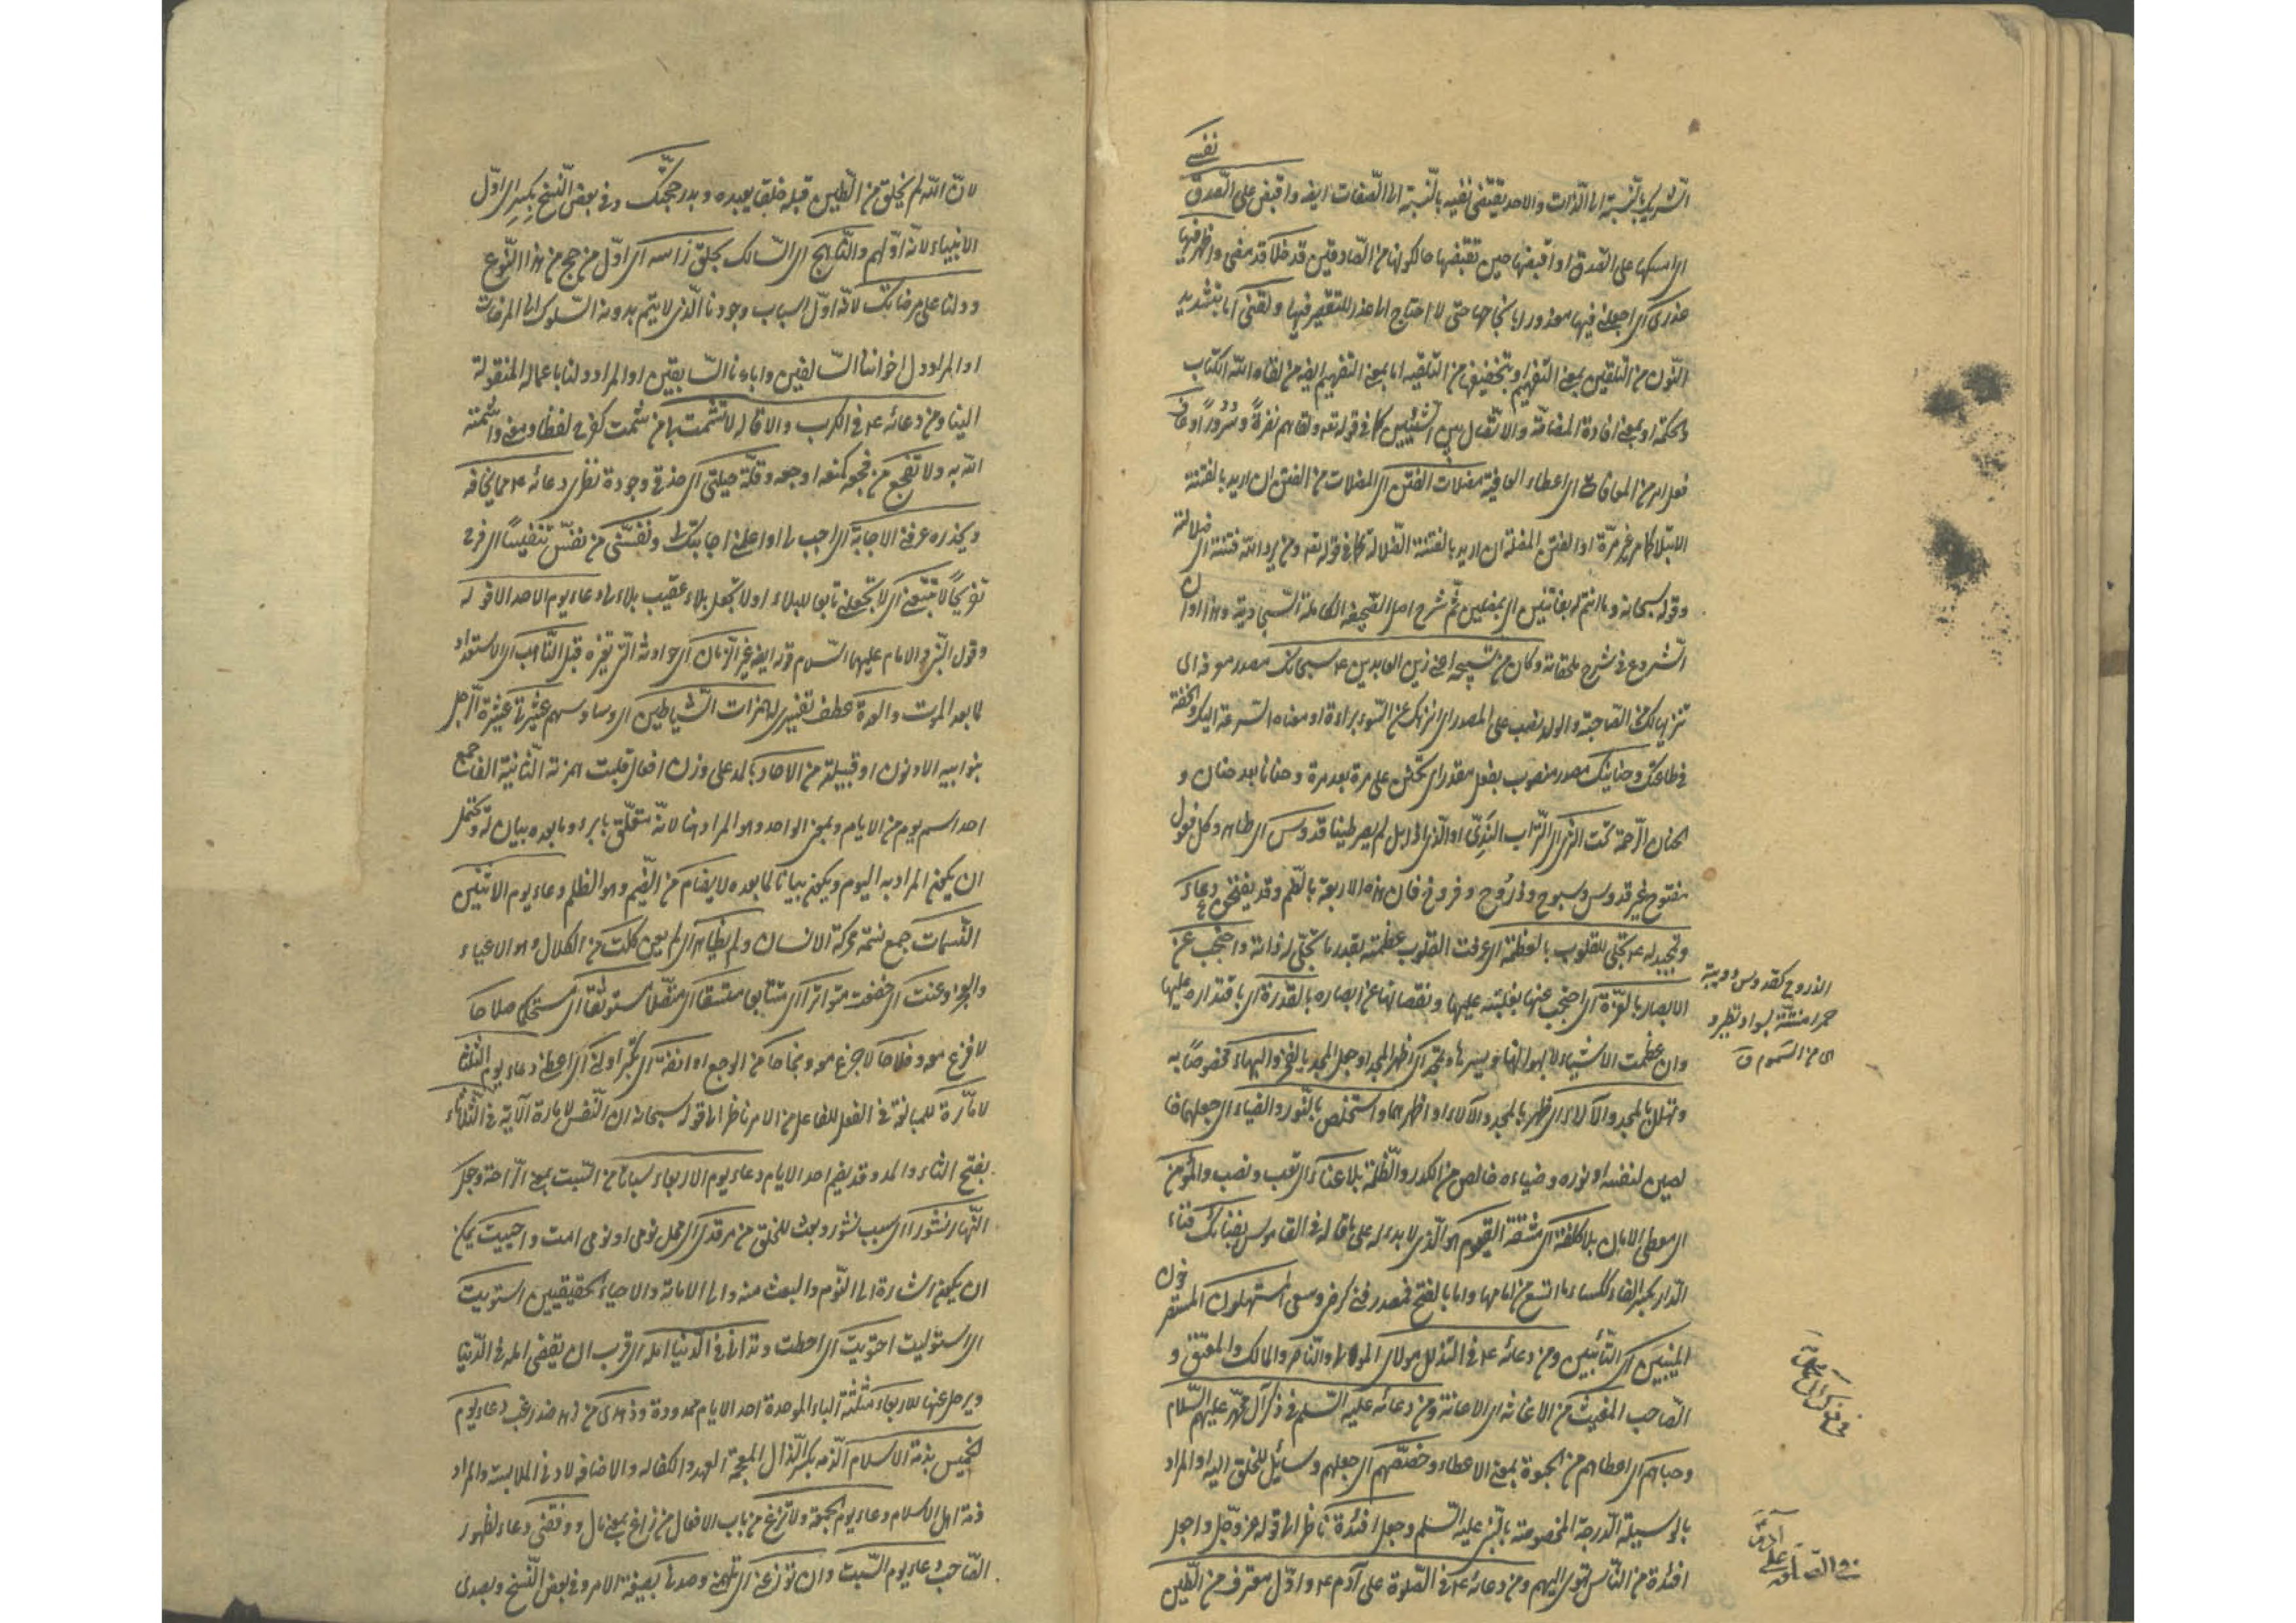 نفسي
الشريك بالنسبة الى الذات والاحد يقتضى نفيه بالنسبة الى الصفات ايضا واقبض على الصدق
اى امسكها على الصدق او اقبضها حين تقبضها حالكونها من الصادقين قد خلا قد مضى واظهر فيها
عذرى اى اجعلنى فيها معذورا بانجاحها حتى لا احتاج الى عذر للتقصير فيها ولقنى اما بتشديد
النون من التلقين بمعنى التفهيم او بتخفيفها من التلقيه اما بمعنى التفهيم ايضا من لقاه الله الكتاب
والحكمة او بمعنى افادة المصادفة والاتصال بين الشيئين كما فى قوله تع ولقاهم نضرة وسرورا وعافنى
فعل امر من المعافاة اى اعطاء العافية مضلات الفتن اى المضلات من الفتن ان اريد بالفتنة
الابتلاء كما مر غير مرة او الفتن المضلة ان اريد بالفتنة الضلالة كما فى قوله تع ومن يرد الله فتنته اى ضلالته
وقوله سبحانه وما انتم له بفاتنين اى بمضلين ثم شرح اصل الصحيفة الكاملة السجادية وهذا اوان
الشروع فى شرح ملحقاته وكان من تسبيحه اعنى زين العابدين ع سبحانك مصدر معرفة اى
تنزيها لك من الصاحبة والولد نصب على المصدر اى انزهك عن السوء براءة او معناه السرعة اليك والخفة
فى طاعتك وحنانيك مصدر منصوب بفعل مقدر اى تحنن على مرة بعد مرة وحنانا بعد حنان و
الحنان الرحمة تحت الثرى اى التراب الندى او الذى اذا بل لم يصر طينا قدوس اى طاهر وكل فعول
مفتوح غير قدوس وسبوح وذروح وفروخ فان هذه الاربعة بالضم وقد يفتحن ومن دعائه ع
وتمجيد له ع تجلى للقلوب بالعظمة اى عرفت القلوب عظمته بقدر ما تجلى له ذاته واحتجب عن
الابصار بالعزة اى احتجب عنها بغلبته عليها ونقصانها عن ابصاره بالقدرة اى باقتداره عليها
وان عظمت الاشياء لا يهوله وتمجد اى اظهر المجد او جعل المجد بالفخر والبهاء مخصوصا به
وتهلل بالمجد والآلاء اى ظهر بالمجد والآلاء او اظهرهما واستخلص بالنور والضياء اى جعلهما خا
لصين لنفسه او نوره وضياءه خالص من الكدر والظلمة بلا عناء اى تعب ونصب والمؤمن
اى معطى الامان بلا كلفة اى مشقة القيوم هو الذى لا بد له على ما قاله فى القاموس بفنائك فناء
الدار بكسر الفاء ككساء ما اتسع من امامها واما بالفتح فمصدر فنى كرضى وسعى المستهلون المستغفرون
المنيبين اى التائبين ومن دعائه ع فى التذلل مولاى المولى والناصر والمالك والمعتق و
الصاحب المغيث من الاغاثة اى الاعانة ومن دعائه عليه السلام فى ذكر آل محمد عليهم السلام
وحباهم اى اعطاهم من الحبوة بمعنى الاعطاء وخصصهم اى جعلهم وسايل للخلق اليه او المراد
بالوسيلة الدرجة المخصوصة بالنبى عليه السلام وجعل افئدة ناظر الى قوله عز وجل واجعل
افئدة من الناس تهوى اليهم ومن دعائه ع فى الصلوة على آدم ع واول معترف من الطين
الذروح كقدوس دويبة
حمراء منقطة بسواد تطير و
هى من السموم ق
لان الله لم يخلق من الطين قبله خلقا يعبده وبدر حجتك وفى بعض النسخ بكر اى اول
الانبياء لانه اولهم والناهج اى السالك بحلق راسه اى اول من حج من هذا النوع
ودلنا على مرضاتك لانه اول اسباب وجودنا الذى لا يتم بدونه السلوك الى المرضات
او المراد دل اخواننا السالفين واباءنا السابقين او المراد دلنا باعماله المنقولة
الينا ومن دعائه ع فى الكرب والاقالة لا تشمت بى من شمت كفرح لفظا ومعنى واشمته
الله به ولا تفجع من فجعه كمنعه اوجعه وقلة حيلتى اى حذقى وجودة نظرى دعائه ع مما يخافه
ويحذره عرفنى الاجابة اى اجب لى او اعلمنى اجابتك ونفسنى من نفس تنفيسا اى فرج
تفريجا لا تتبعنى اى لا تجعلنى تابعا للبلاء او لا تجعل بلاء عقيب بلاء لى دعاء يوم الاحد الا قوله
وقول النبى والامام عليهما السلام قوله ايضا غير الزمان اى حوادثه التى تغيره قبل التاهب اى الاستعداد
لما بعد الموت والعدة عطف تفسيرى له همزات الشياطين اى وساوسهم عشيرتى عشيرة الرجل
بنو ابيه الادنون او قبيلته من الاحاد بالمد على وزن افعال قلبت همزته الثانية الفا جمع
احد اسم يوم من الايام وبمعنى الواحد وهو المراد هنا لانه متعلق بابرء وما بعده بيان له ويحتمل
ان يكون المراد به اليوم ويكون بيانا لما بعده لا يضام من الضيم وهو الظلم دعاء يوم الاثنين
النسمات جمع نسمة محركة الانسان ولم يظاهر اى لم يعن كلت من الكلال وهو الاعياء
والعجز وعنت اى خضعت متواترا اى متتابعا متسقا اى متصلا مستوثقا اى مستحكما صلاحا
لا فزع معه وفلاحا لا جزع معه ونجاحا من الوجع او انفة اى تكبر اولنى اى اعطنى دعاء يوم الثلثا
لامارة للمبالغة فى الفعل للفاعل من الامر ناظر الى قوله سبحانه ان النفس لامارة الآية فى الثلاثاء
بفتح الثاء والمد وقد يضم احد الايام دعاء يوم الاربعاء سباتا من السبت بمعنى الراحة وجعل
النهار نشورا اى سبب نشور وبعث للخلق من مرقدى اى محل نومى او نومى امت واحييت يمكن
ان يكون اشارة الى النوم والبعث منه والى الاماتة والاحياء الحقيقيين استويت
اى استوليت احتويت اى احطت وتدانى فى الدنيا امله اى قرب ان يقضى امله فى الدنيا
ويرحل عنها للاربعاء مثلثة الباء الموحدة احد الايام ممدودة وزهدى من زهد ضد رغب دعاء يوم
الخميس بذمة الاسلام الذمة بكسر الذال المعجمة العهد والكفالة والاضافة لادنى الملابسة والمراد
ذمة اهل الاسلام دعاء يوم الجمعة ولا تزغ من باب الافعال من زاغ بمعنى مال ووفقنى دعاء لظهور
الصاحب دعاء يوم السبت وان توزعنى اى تلهمنى وصدنى بصيغة الامر وفى بعض النسخ وبصدى